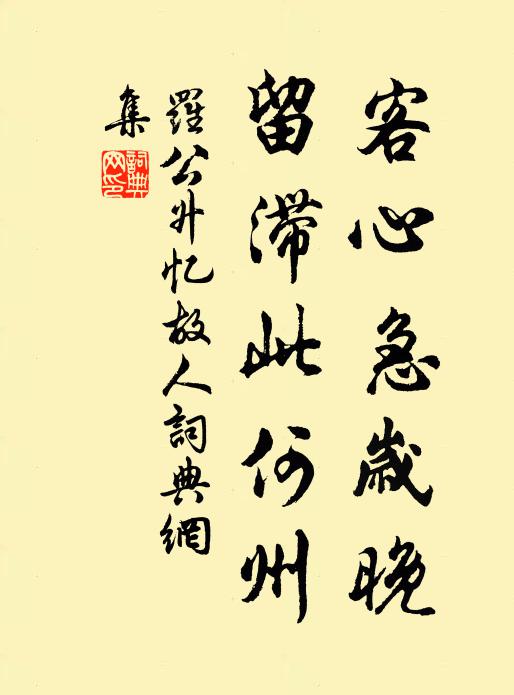 客心急歲晚
留滯此何州
羅公升忆故人詞典網
集
詞典网印